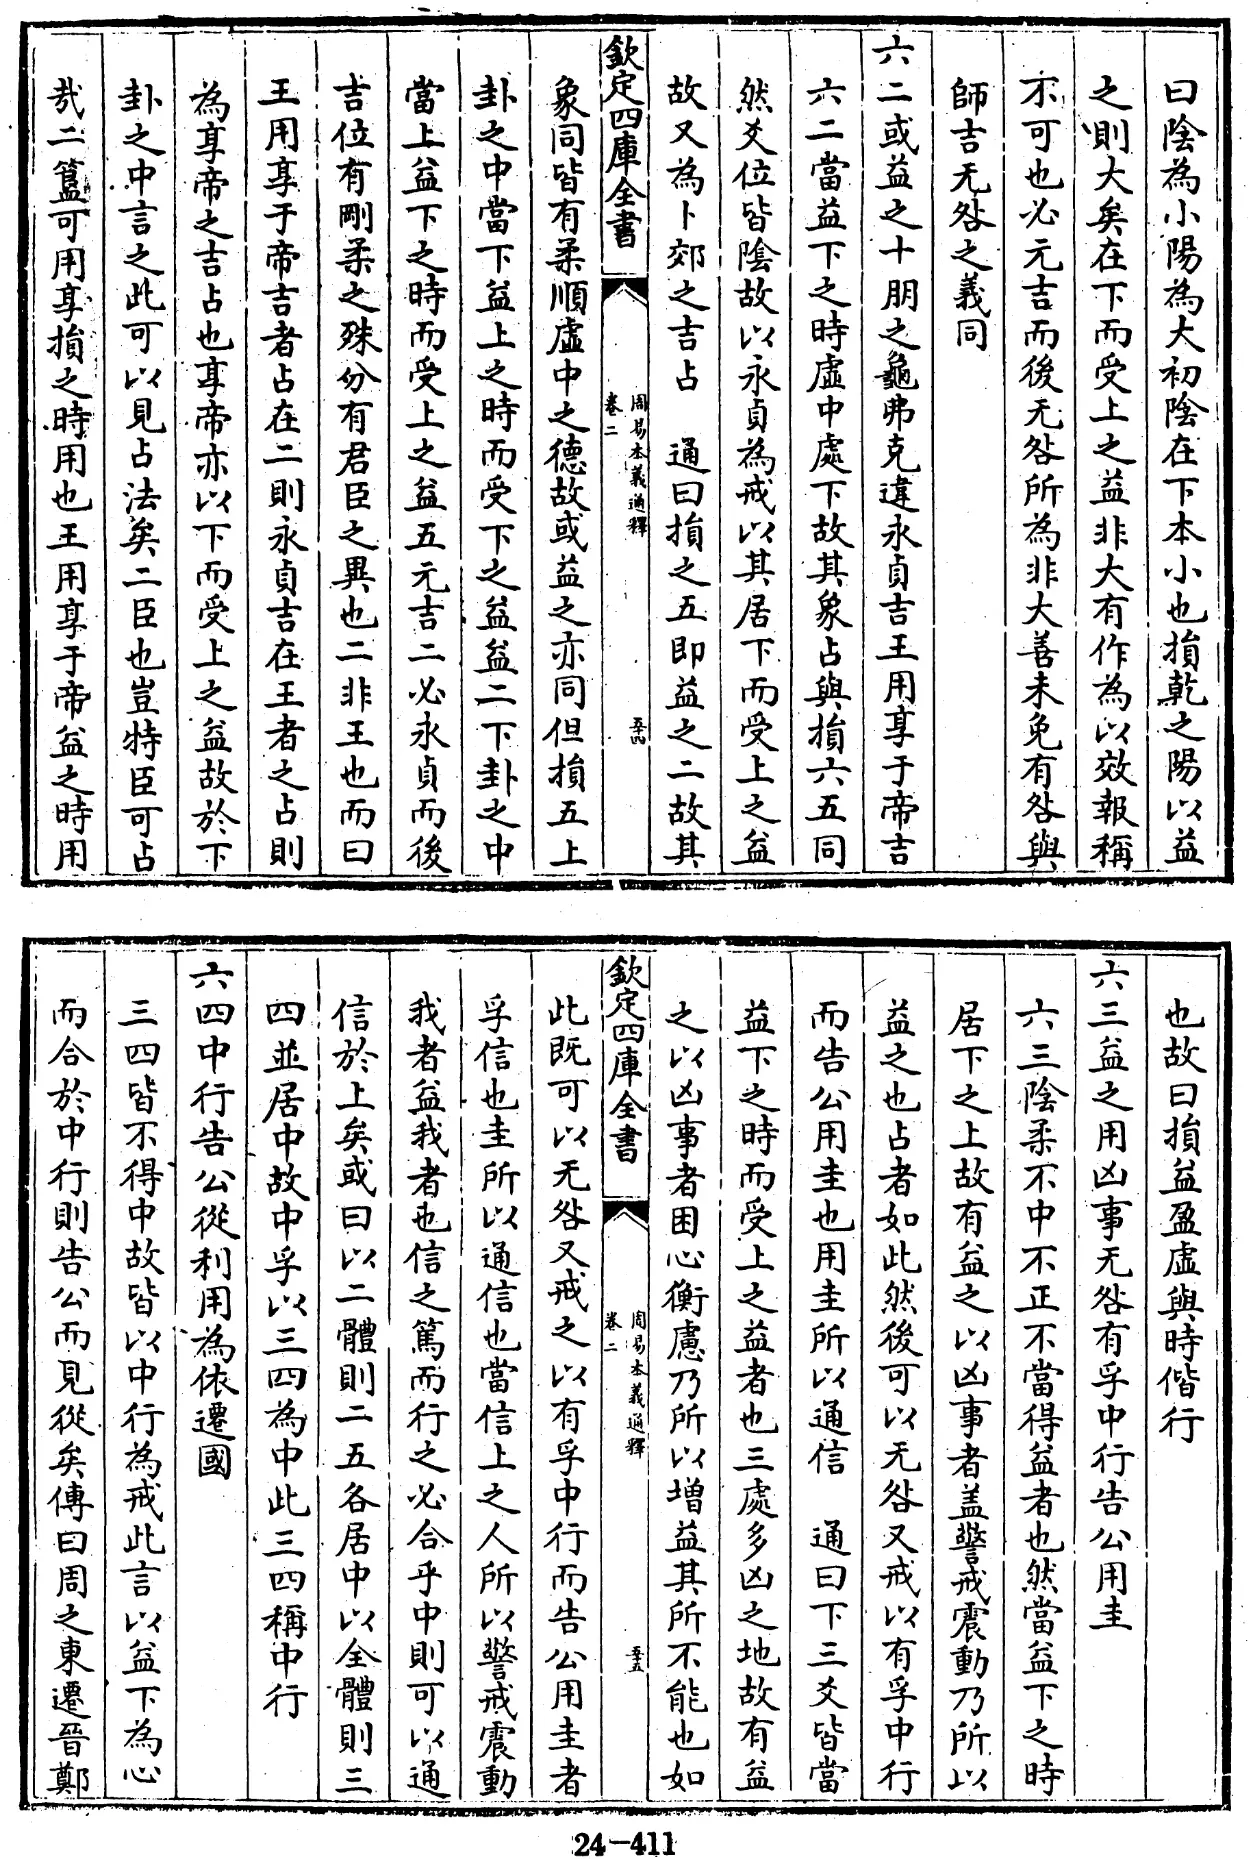 曰陰為小陽為大初陰在下本小也損乾之陽以益
之則大矣在下而受上之益非大有作為以效報稱
不可也必元吉而後无咎所為非大善未免有咎與
師吉无咎之義同
六二或益之十朋之龜弗克違永貞吉王用享于帝吉
六二當益下之時虛中處下故其象占與損六五同
然爻位皆陰故以永貞為戒以其居下而受上之益
故又為卜郊之吉占　通曰損之五即益之二故其
欽定四庫全書
周易本義通釋
卷二
五十四
象同皆有柔順虛中之德故或益之亦同但損五上
卦之中當下益上之時而受下之益益二下卦之中
當上益下之時而受上之益五元吉二必永貞而後
吉位有剛柔之殊分有君臣之異也二非王也而曰
王用享于帝吉者占在二則永貞吉在王者之占則
為享帝之吉占也享帝亦以下而受上之益故於下
卦之中言之此可以見占法矣二臣也豈特臣可占
哉二簋可用享損之時用也王用享于帝益之時用
也故曰損益盈虛與時偕行
六三益之用凶事无咎有孚中行告公用圭
六三陰柔不中不正不當得益者也然當益下之時
居下之上故有益之以凶事者蓋警戒震動乃所以
益之也占者如此然後可以无咎又戒以有孚中行
而告公用圭也用圭所以通信　通曰下三爻皆當
益下之時而受上之益者也三處多凶之地故有益
之以凶事者困心衡慮乃所以增益其所不能也如
欽定四庫全書
周易本義通釋
卷二
五十五
此既可以无咎又戒之以有孚中行而告公用圭者
孚信也圭所以通信也當信上之人所以警戒震動
我者益我者也信之篤而行之必合乎中則可以通
信於上矣或曰以二體則二五各居中以全體則三
四並居中故中孚以三四為中此三四稱中行
六四中行告公從利用為依遷國
三四皆不得中故皆以中行為戒此言以益下為心
而合於中行則告公而見從矣傳曰周之東遷晉鄭
24-411